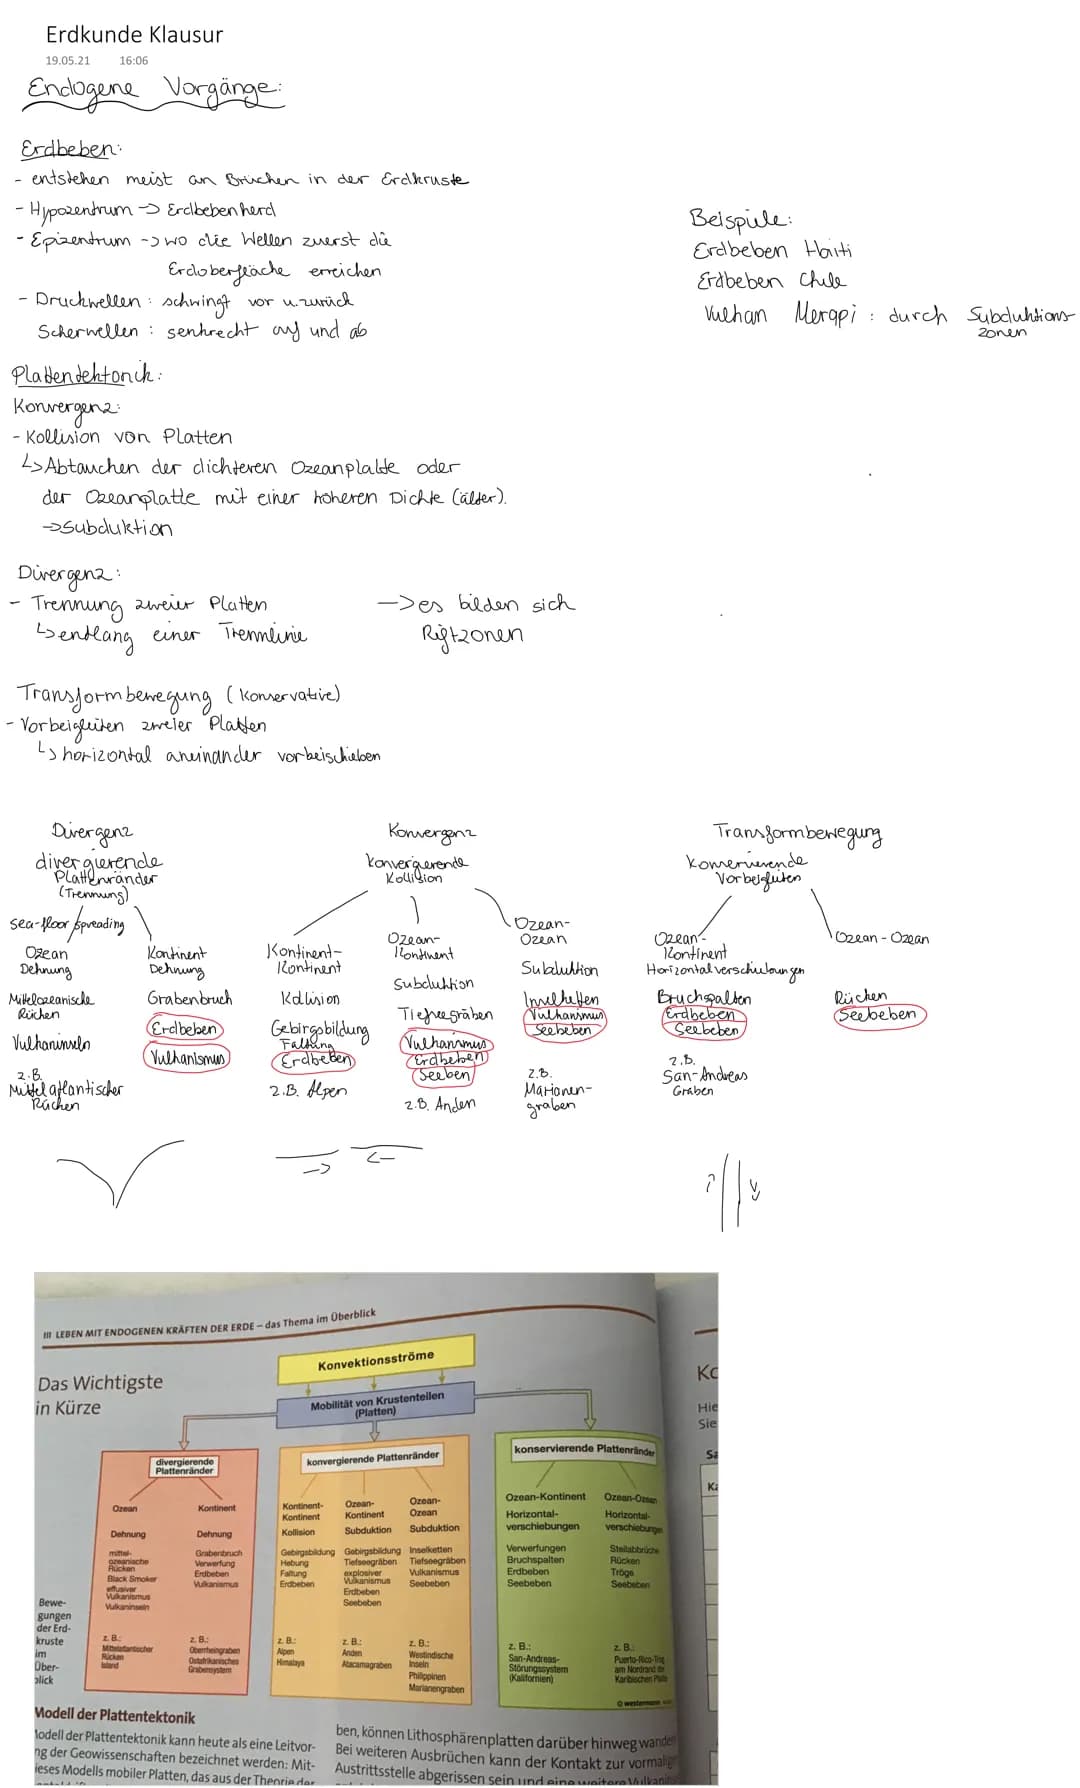 Erdkunde Klausur
19.05.21 16:06
Endogene Vorgänge:
Erdbeben:
- entstehen meist an Brüchen in der Erdkruste
- Hypozentrum -> Erdbebenherd
- Epizentrum -> wo die Wellen zuerst die
Erdoberfläche erreichen
- Druckwellen : schwingt vor u. zurück
Scherwellen : senkrecht auf und ab
Beispiele:
Erdbeben Haiti
Erdbeben Chile
Vulkan Merapi : durch Subduktions-
zonen
Plattentektonik:
Konvergenz:
- Kollision von Platten
↳ Abtauchen der dichteren Ozeanplatte oder
der Ozeanplatte mit einer höheren Dichte (älter).
-> Subduktion
Divergenz:
- Trennung zweier Platten
↳ entlang einer Trennlinie
-> es bilden sich
Riftzonen
Transformbewegung (Konservative)
- Vorbeigleiten zweier Platten
↳ horizontal aneinander vorbeischieben
Divergenz
divergierende
Plattenränder
(Trennung)
sea-floor spreading
Ozean
Dehnung
Mittelozeanische
Rücken
Vulkaninseln
z.B.
Mittelatlantischer
Rücken
Kontinent
Dehnung
Grabenbruch
Erdbeben
Vulkanismus
Konvergenz
konvergierende
Kollision
Kontinent-
Kontinent
Kollision
Gebirgsbildung
Faltung
Erdbeben
z.B. Alpen
Ozean-
Kontinent
Subduktion
Tiefseegräben
Vulkanismus
Erdbeben
Seeben
z.B. Anden
Ozean-
Ozean
Subduktion
Inselketten
Vulkanismus
Seebeben
z.B.
Marianen-
graben
Transformbewegung
konservierende
Vorbeigleiten
Ozean-
Kontinent
Horizontalverschiebungen
Bruchspalten
Erdbeben
Seebeben
z.B.
San-Andreas
Graben
Ozean-Ozean
Rücken
Seebeben
III LEBEN MIT ENDOGENEN KRÄFTEN DER ERDE – das Thema im Überblick
Das Wichtigste
in Kürze
Konvektionsströme
Mobilität von Krustenteilen
(Platten)
divergierende
Plattenränder
Ozean
Dehnung
mittel-
ozeanische
Rücken
Black Smoker
effusiver
Vulkanismus
Vulkaninseln
z. B.:
Mittelatlantischer
Rücken
Island
Kontinent
Dehnung
Grabenbruch
Verwerfung
Erdbeben
Vulkanismus
z. B.:
Oberrheingraben
Ostafrikanisches
Grabensystem
konvergierende Plattenränder
Kontinent-
Kontinent
Kollision
Gebirgsbildung
Hebung
Faltung
Erdbeben
z. B.:
Alpen
Himalaya
Ozean-
Kontinent
Subduktion
Gebirgsbildung
Tiefseegräben
explosiver
Vulkanismus
Erdbeben
Seebeben
z. B.:
Anden
Atacamagraben
Ozean-
Ozean
Subduktion
Inselketten
Tiefseegräben
Vulkanismus
Seebeben
z. B.:
Westindische
Inseln
Philippinen
Marianengraben
konservierende Plattenränder
Ozean-Kontinent
Horizontal-
verschiebungen
Verwerfungen
Bruchspalten
Erdbeben
Seebeben
z. B.:
San-Andreas-
Störungssystem
(Kalifornien)
Ozean-Ozean
Horizontal-
verschiebungen
Steilabbrüche
Rücken
Tröge
Seebeben
z. B.:
Puerto-Rico-Trog
am Nordrand der
Karibischen Platte
© westermann
Bewe-
gungen
der Erd-
kruste
im
Über-
blick
Ko
Hie
Sie
Sa
Ka
Modell der Plattentektonik
Modell der Plattentektonik kann heute als eine Leitvor-
ng der Geowissenschaften bezeichnet werden: Mit-
ieses Modells mobiler Platten, das aus der Theorie der
ben, können Lithosphärenplatten darüber hinweg wander
Bei weiteren Ausbrüchen kann der Kontakt zur vormalige
Austrittsstelle abgerissen sein und eine weitere Vulkanins